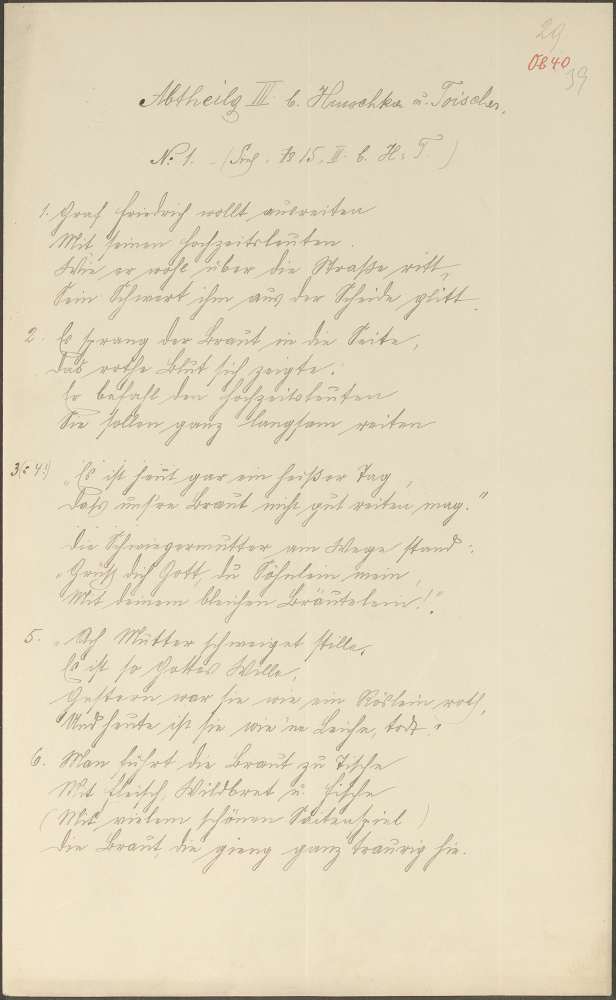 29
OB40
39
Abtheilg III. b. Hruschka u. Toischer.
No 1. (. No 15, II. b. H. T.)
1. Graf Friedrich wollt ausreiten
Mit seinen Hochzeitsleuten.
Wie er wohl über die Straße ritt,
Sein Schwert ihm aus der Scheide glitt.
2. Es sprang der Braut in die Seite,
Das rothe Blut sich zeigte.
Er befahl den Hochzeitsleuten
Sie sollen ganz langsam reiten
3.(: 4:) „Es ist heut gar ein heißer Tag,
Daß uns're Braut nicht gut reiten mag.“
Die Schwiegermutter am Wege stand:
„Grüß dich Gott, du Söhnlein mein,
Mit deinem bleichen Bräutelein!“
5. „Ach Mutter schweiget stille,
Es ist so Gottes Wille,
Gestern war sie wie ein Röslein roth,
Und heute ist sie wie 'ne Leiche, todt.“
6. Man führt die Braut zu Tische
Mit Fleisch, Wildbret u. Fische
(Mit vielem schönen Saitenspiel)
Die Braut, die gieng ganz traurig hie.